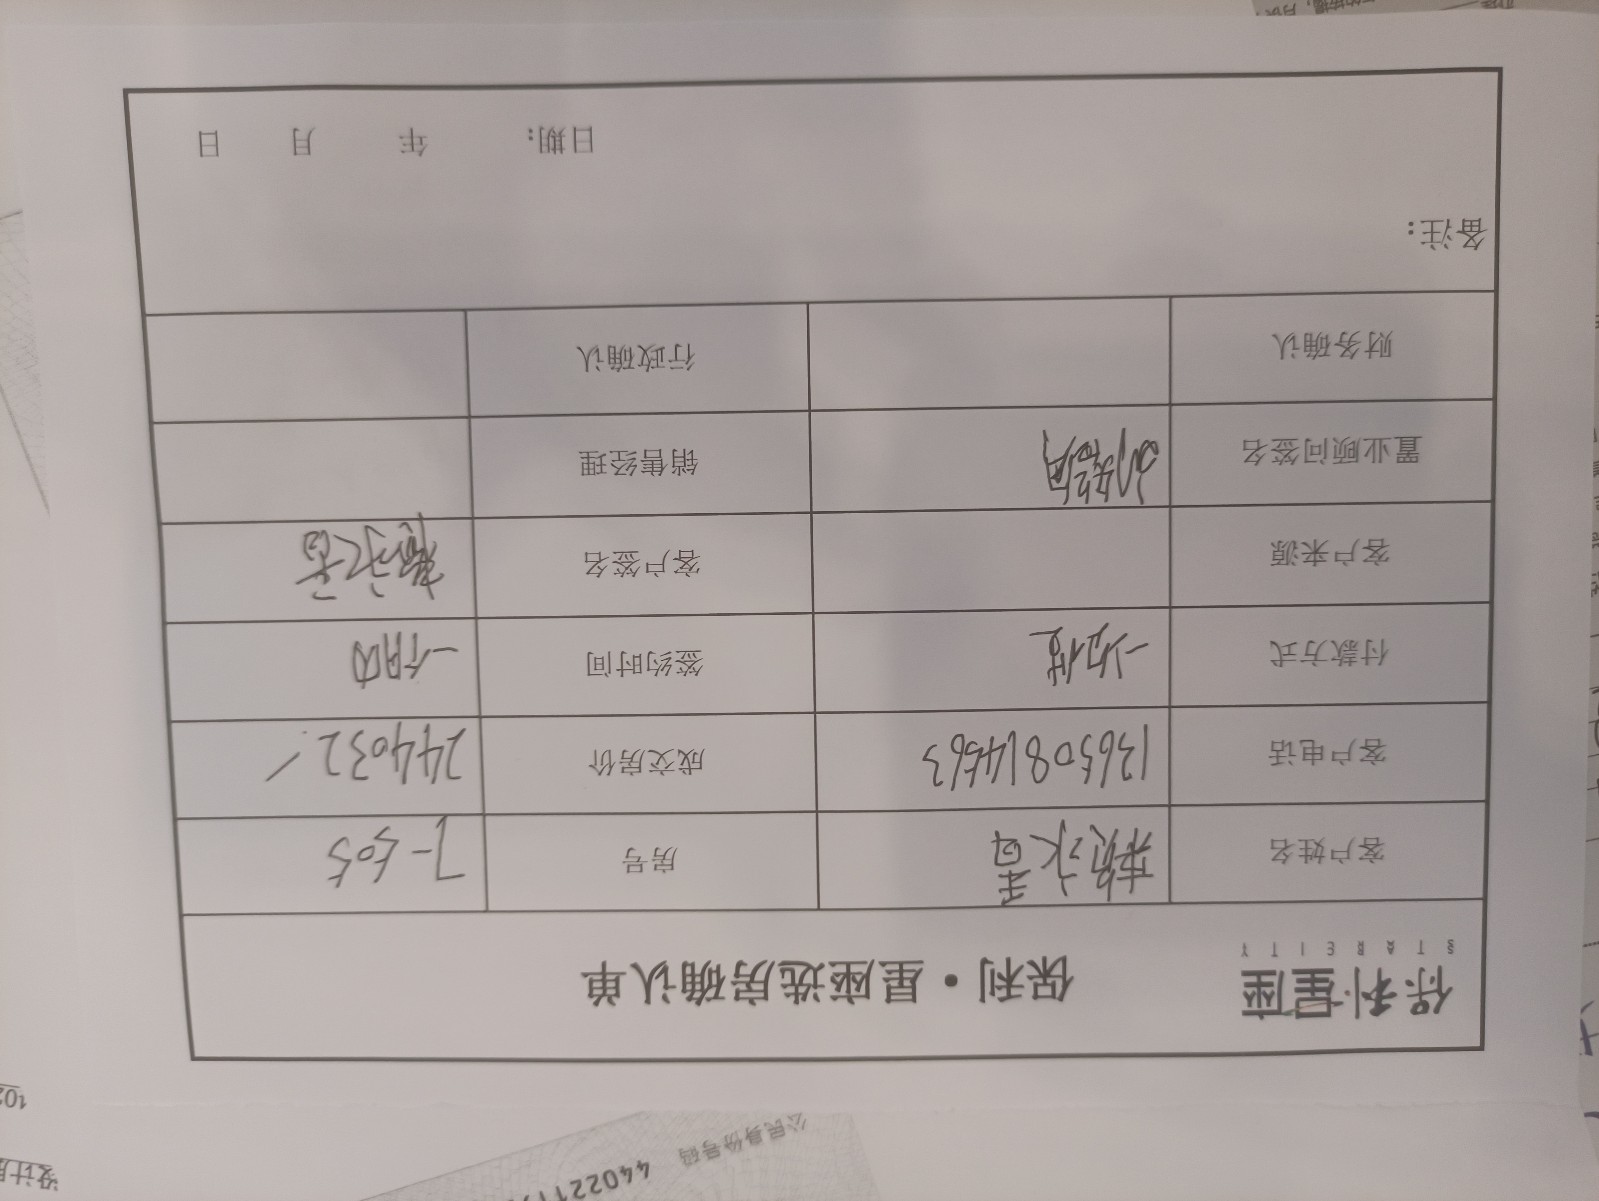 保利星座
STARCITY
保利·星座选房确认单
客户姓名 赖永香 房号 7-505
客户电话 13650814563 成交房价 244032/
付款方式 一次性 签约时间 一个月内
客户来源 客户签名 赖永香
置业顾问签名 销售经理
财务确认 行政确认
备注:
日期: 年 月 日
公民身份号码 440221